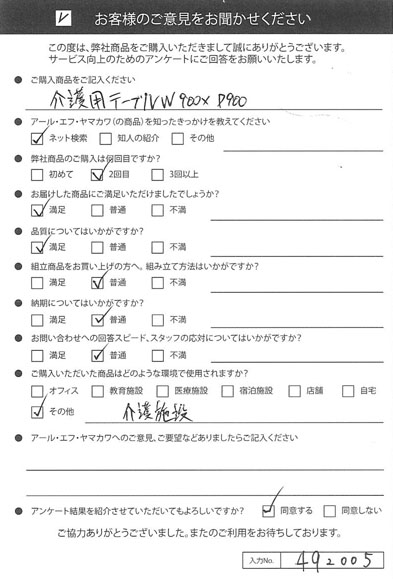 ✓ お客様のご意見をお聞かせください
この度は、弊社商品をご購入いただきまして誠にありがとうございます。
サービス向上のためのアンケートにご回答をお願いいたします。
● ご購入商品をご記入ください
介護用テーブルW900×D900
● アール・エフ・ヤマカワ(の商品)を知ったきっかけを教えてください
☑ ネット検索 □ 知人の紹介 □ その他
● 弊社商品のご購入は何回目ですか?
□ 初めて ☑ 2回目 □ 3回以上
● お届けした商品にご満足いただけましたでしょうか?
☑ 満足 □ 普通 □ 不満
● 品質についてはいかがですか?
☑ 満足 □ 普通 □ 不満
● 組立商品をお買い上げの方へ。組み立て方法はいかがですか?
□ 満足 ☑ 普通 □ 不満
● 納期についてはいかがですか?
□ 満足 ☑ 普通 □ 不満
● お問い合わせへの回答スピード、スタッフの応対についてはいかがですか?
□ 満足 ☑ 普通 □ 不満
● ご購入いただいた商品はどのような環境で使用されますか?
□ オフィス □ 教育施設 □ 医療施設 □ 宿泊施設 □ 店舗 □ 自宅
☑ その他 介護施設
● アール・エフ・ヤマカワへのご意見、ご要望などありましたらご記入ください
● アンケート結果を紹介させていただいてもよろしいですか? ☑ 同意する □ 同意しない
ご協力ありがとうございました。またのご利用をお待ちしております。
入力No. 492005